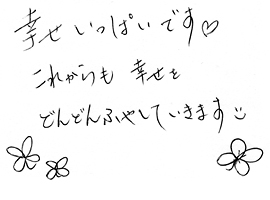 幸せいっぱいです♡
これからも 幸せを
どんどんふやしていきます☺